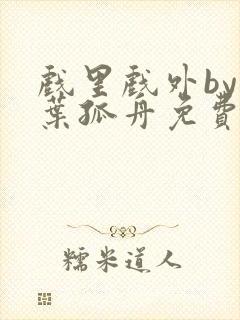 戲里戲外by
葉孤舟免費
糯米道人